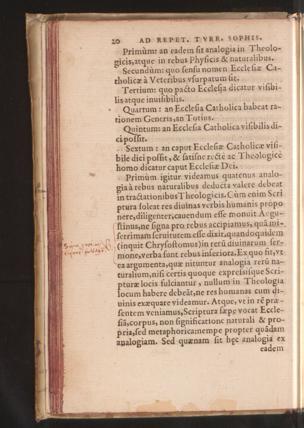 20 AD REPET. TVRR. SOPHIS.
Primùm: an eadem sit analogia in Theolo-
gicis, atque in rebus Physicis & naturalibus.
Secundum: quo sensu nomen Ecclesiæ Ca-
tholicæ à Veteribus vsurpatum sit.
Tertium: quo pacto Ecclesia dicatur visibi-
lis atque inuisibilis.
Quartum: an Ecclesia Catholica habeat ra-
tionem Generis, an Totius.
Quintum: an Ecclesia Catholica visibilis di-
ci possit.
Sextum: an caput Ecclesiæ Catholicæ visi-
bile dici possit, & satisne rectè ac Theologicè
homo dicatur caput Ecclesiæ Dei.
Primùm igitur videamus quatenus analo-
gia à rebus naturalibus deducta valere debeat
in tractationibus Theologicis. Cùm enim Scri
ptura soleat res diuinas verbis humanis propo
nere, diligenter, cauendum esse monuit Augu-
stinus, ne signa pro rebus accipiamus, quâ mi-
serrimam seruitutem esse dixit, quandoquidem
(inquit Chrysostomus) in rerũ diuinarum ser-
mone, verba sunt rebus inferiora. Ex quo sit, vt
ea argumenta, quæ nituntur analogia rerũ na-
turalium, nisi certis quoque expressisque Scri-
pturæ locis fulciantur, nullum in Theologia
locum habere debeãt, ne res humanas cum di-
uinis exæquare videamur. Atque, vt in rẽ præ-
sentem veniamus, Scriptura sæpe vocat Eccle-
siã, corpus, non significatione naturali & pro-
pria, sed metaphorica: nempe propter quãdam
analogiam. Sed quænam sit hęc analogia ex
eadem